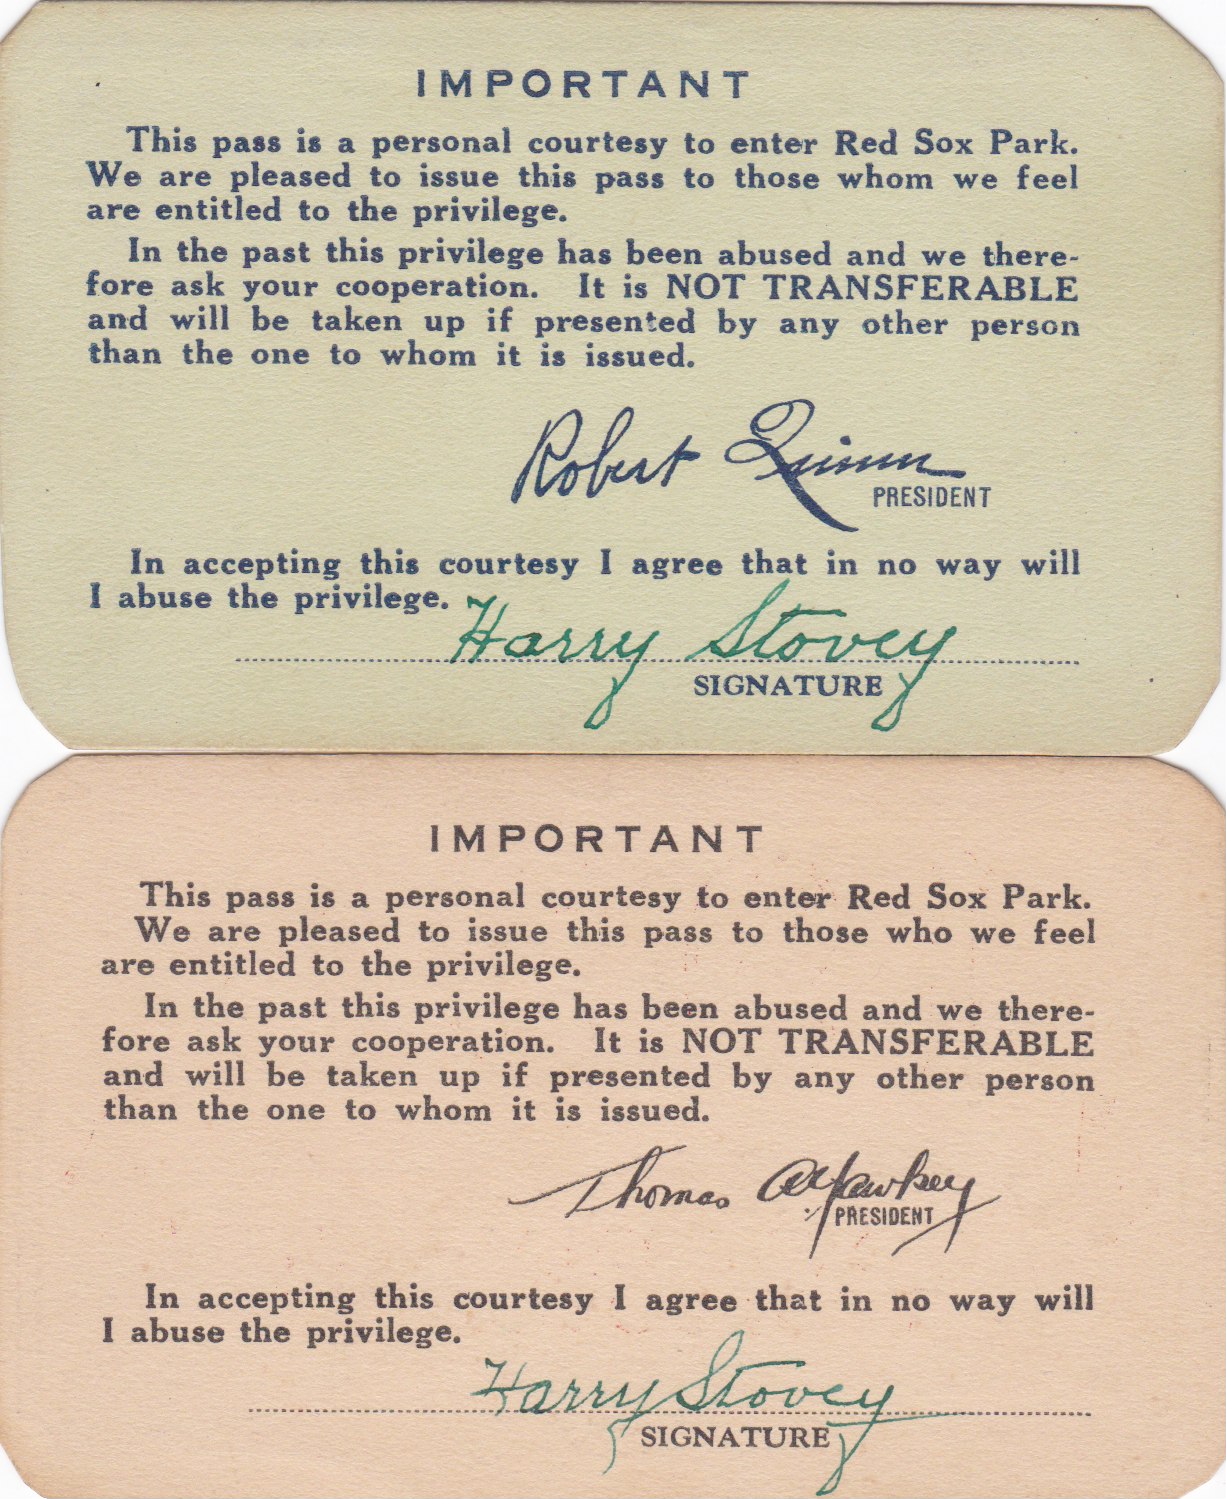 IMPORTANT
This pass is a personal courtesy to enter Red Sox Park.
We are pleased to issue this pass to those whom we feel
are entitled to the privilege.
In the past this privilege has been abused and we there-
fore ask your cooperation. It is NOT TRANSFERABLE
and will be taken up if presented by any other person
than the one to whom it is issued.
Robert Quinn
PRESIDENT
In accepting this courtesy I agree that in no way will
I abuse the privilege.
Harry Stovey
SIGNATURE
IMPORTANT
This pass is a personal courtesy to enter Red Sox Park.
We are pleased to issue this pass to those who we feel
are entitled to the privilege.
In the past this privilege has been abused and we there-
fore ask your cooperation. It is NOT TRANSFERABLE
and will be taken up if presented by any other person
than the one to whom it is issued.
Thomas A Yawkey
PRESIDENT
In accepting this courtesy I agree that in no way will
I abuse the privilege.
Harry Stovey
SIGNATURE